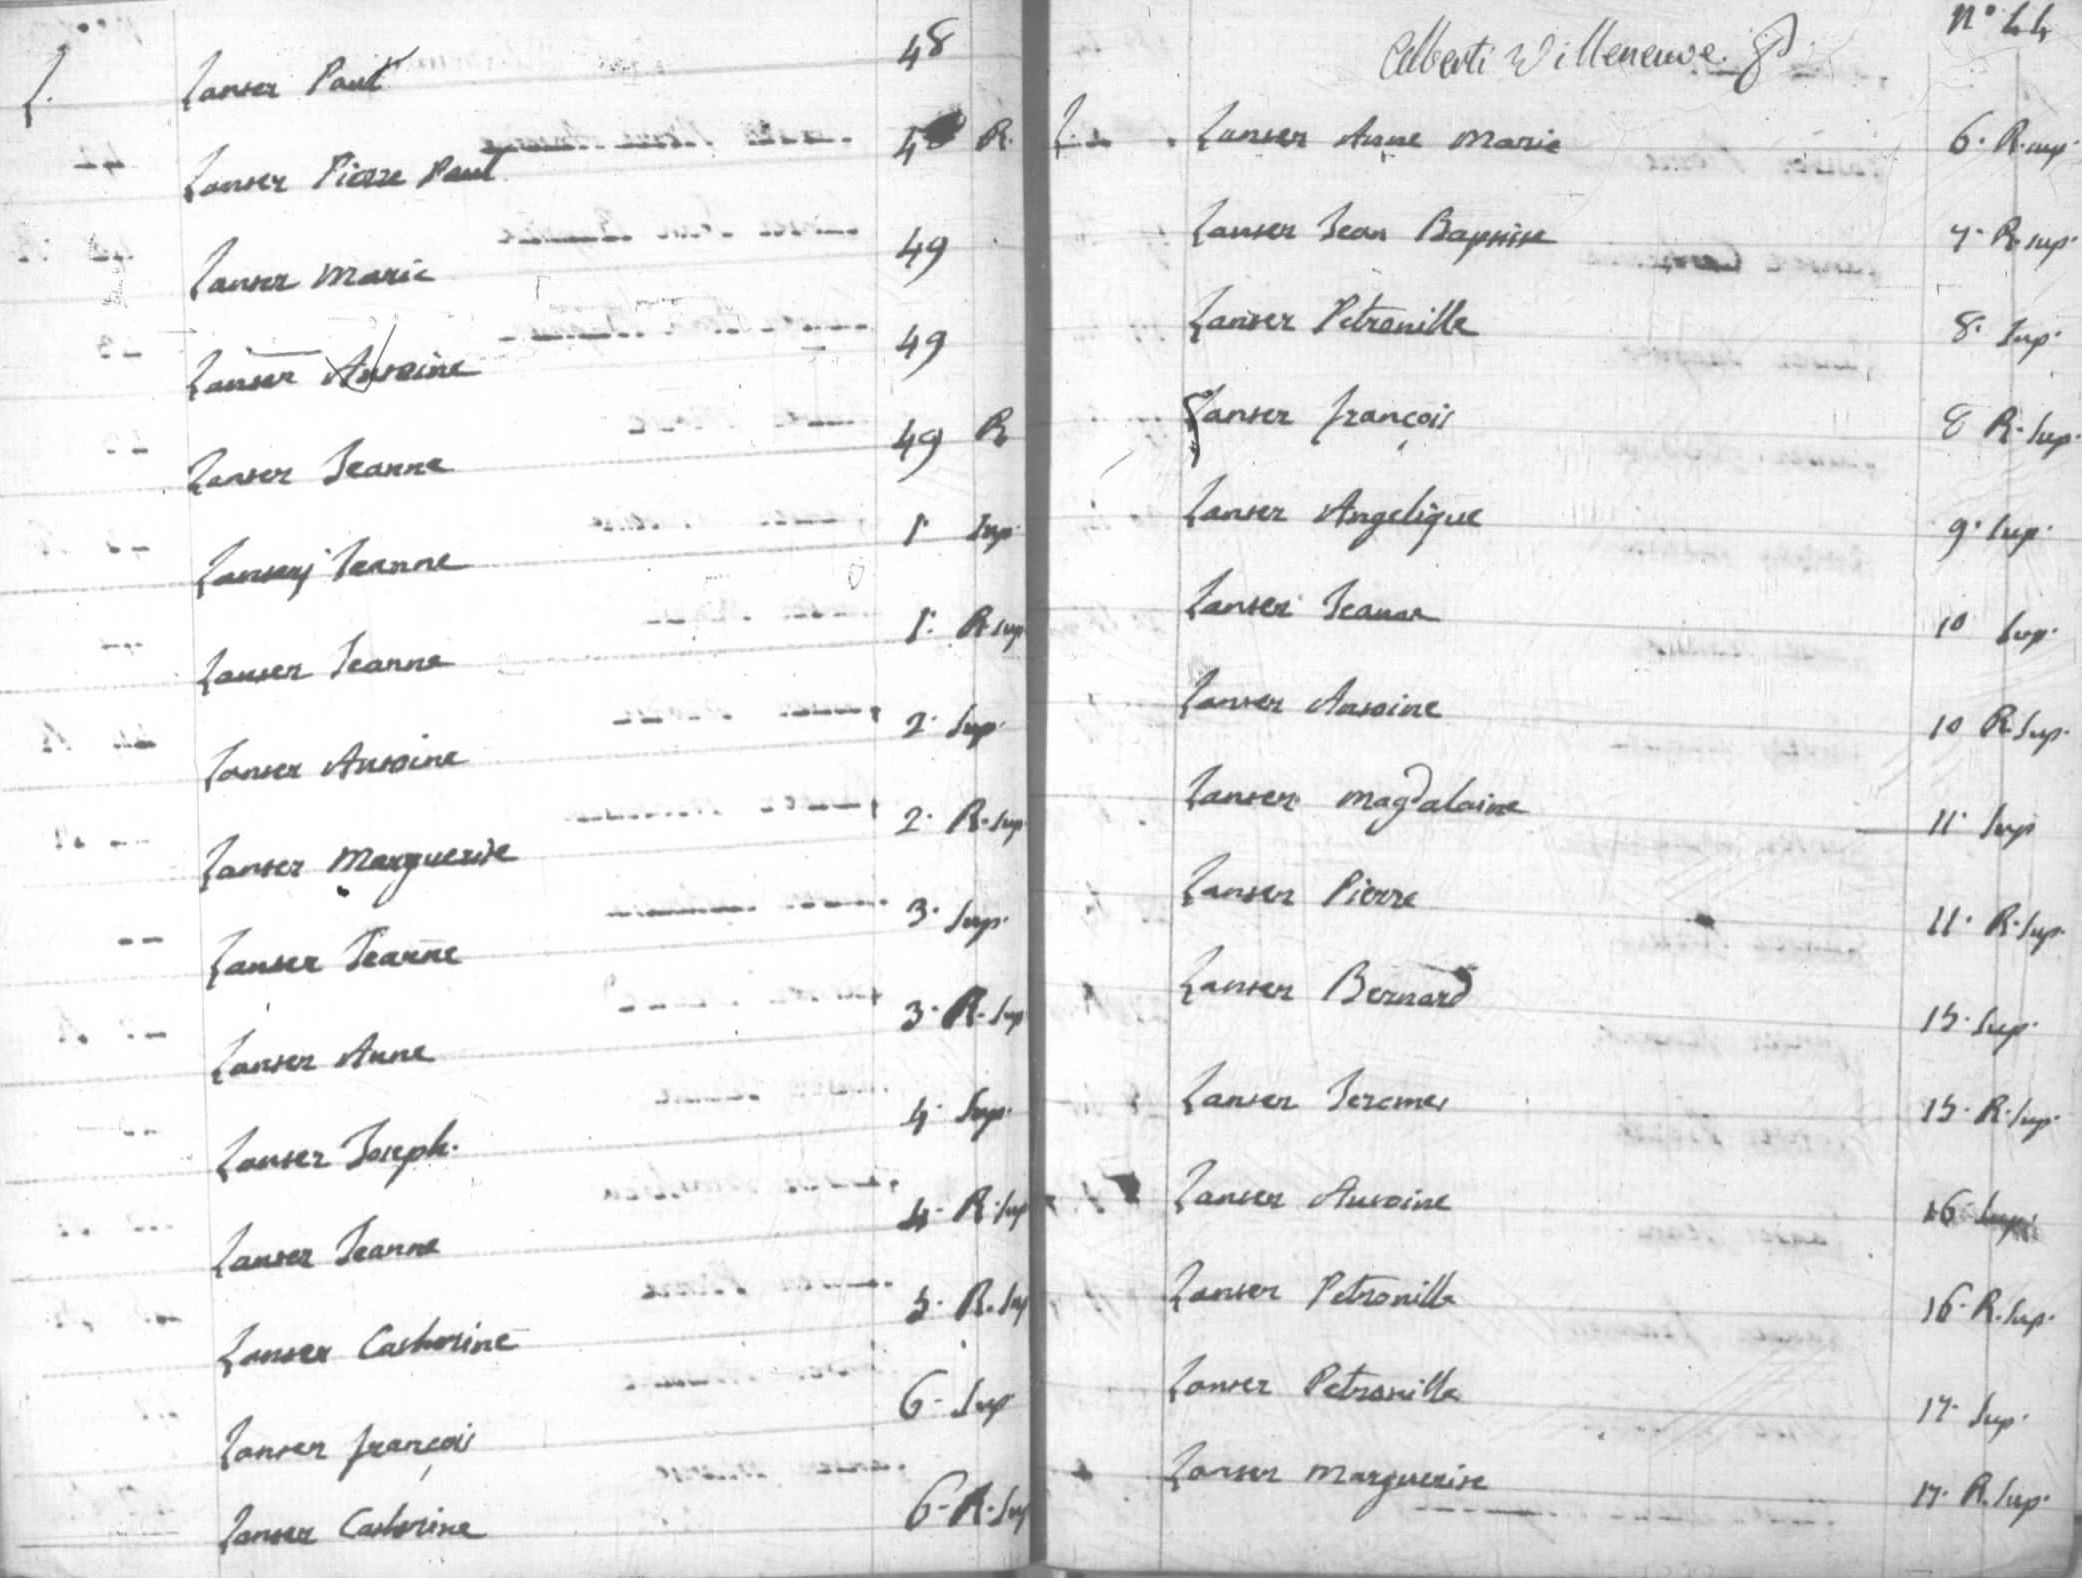 L. Lanser Paul 48
Lanser Pierre Paul 4 R.
Lanser Marie 49
Lanser Antoine 49
Lanser Jeanne 49 R
Jeanne 1. Sup.
Lanser Jeanne 1. R. Sup
Lanser Antoine 2. Sup.
Lanser Marguerite 2. R. Sup
Lanser Jeanne 3. Sup.
Lanser Anne 3. R. Sup
Lanser Joseph. 4. Sup.
Lanser Jeanne 4. R. Sup
Lanser Catherine 5. R. Sup
Lanser françois 6. Sup
Lanser Catherine 6. R. Sup
n° 44
Alberti Villeneuve
L. Lanser Anne Marie 6. R. sup.
Lanser Jean Baptiste 7. R. sup.
Lanser Petronille 8. Sup.
Lanser françois 8 R. Sup.
Lanser Angelique 9. Sup.
Lanser Jeanne 10 Sup.
Lanser Antoine 10 R. Sup.
Lanser Magdalaine 11. Sup
Lanser Pierre 11. R. Sup.
Lanser Bernard 15. Sup.
Lanser Jerome 15. R. Sup.
Lanser Antoine 16 Sup.
Lanser Petronille 16. R. Sup.
Lanser Petronille 17. Sup.
Lanser Marguerite 17. R. Sup.